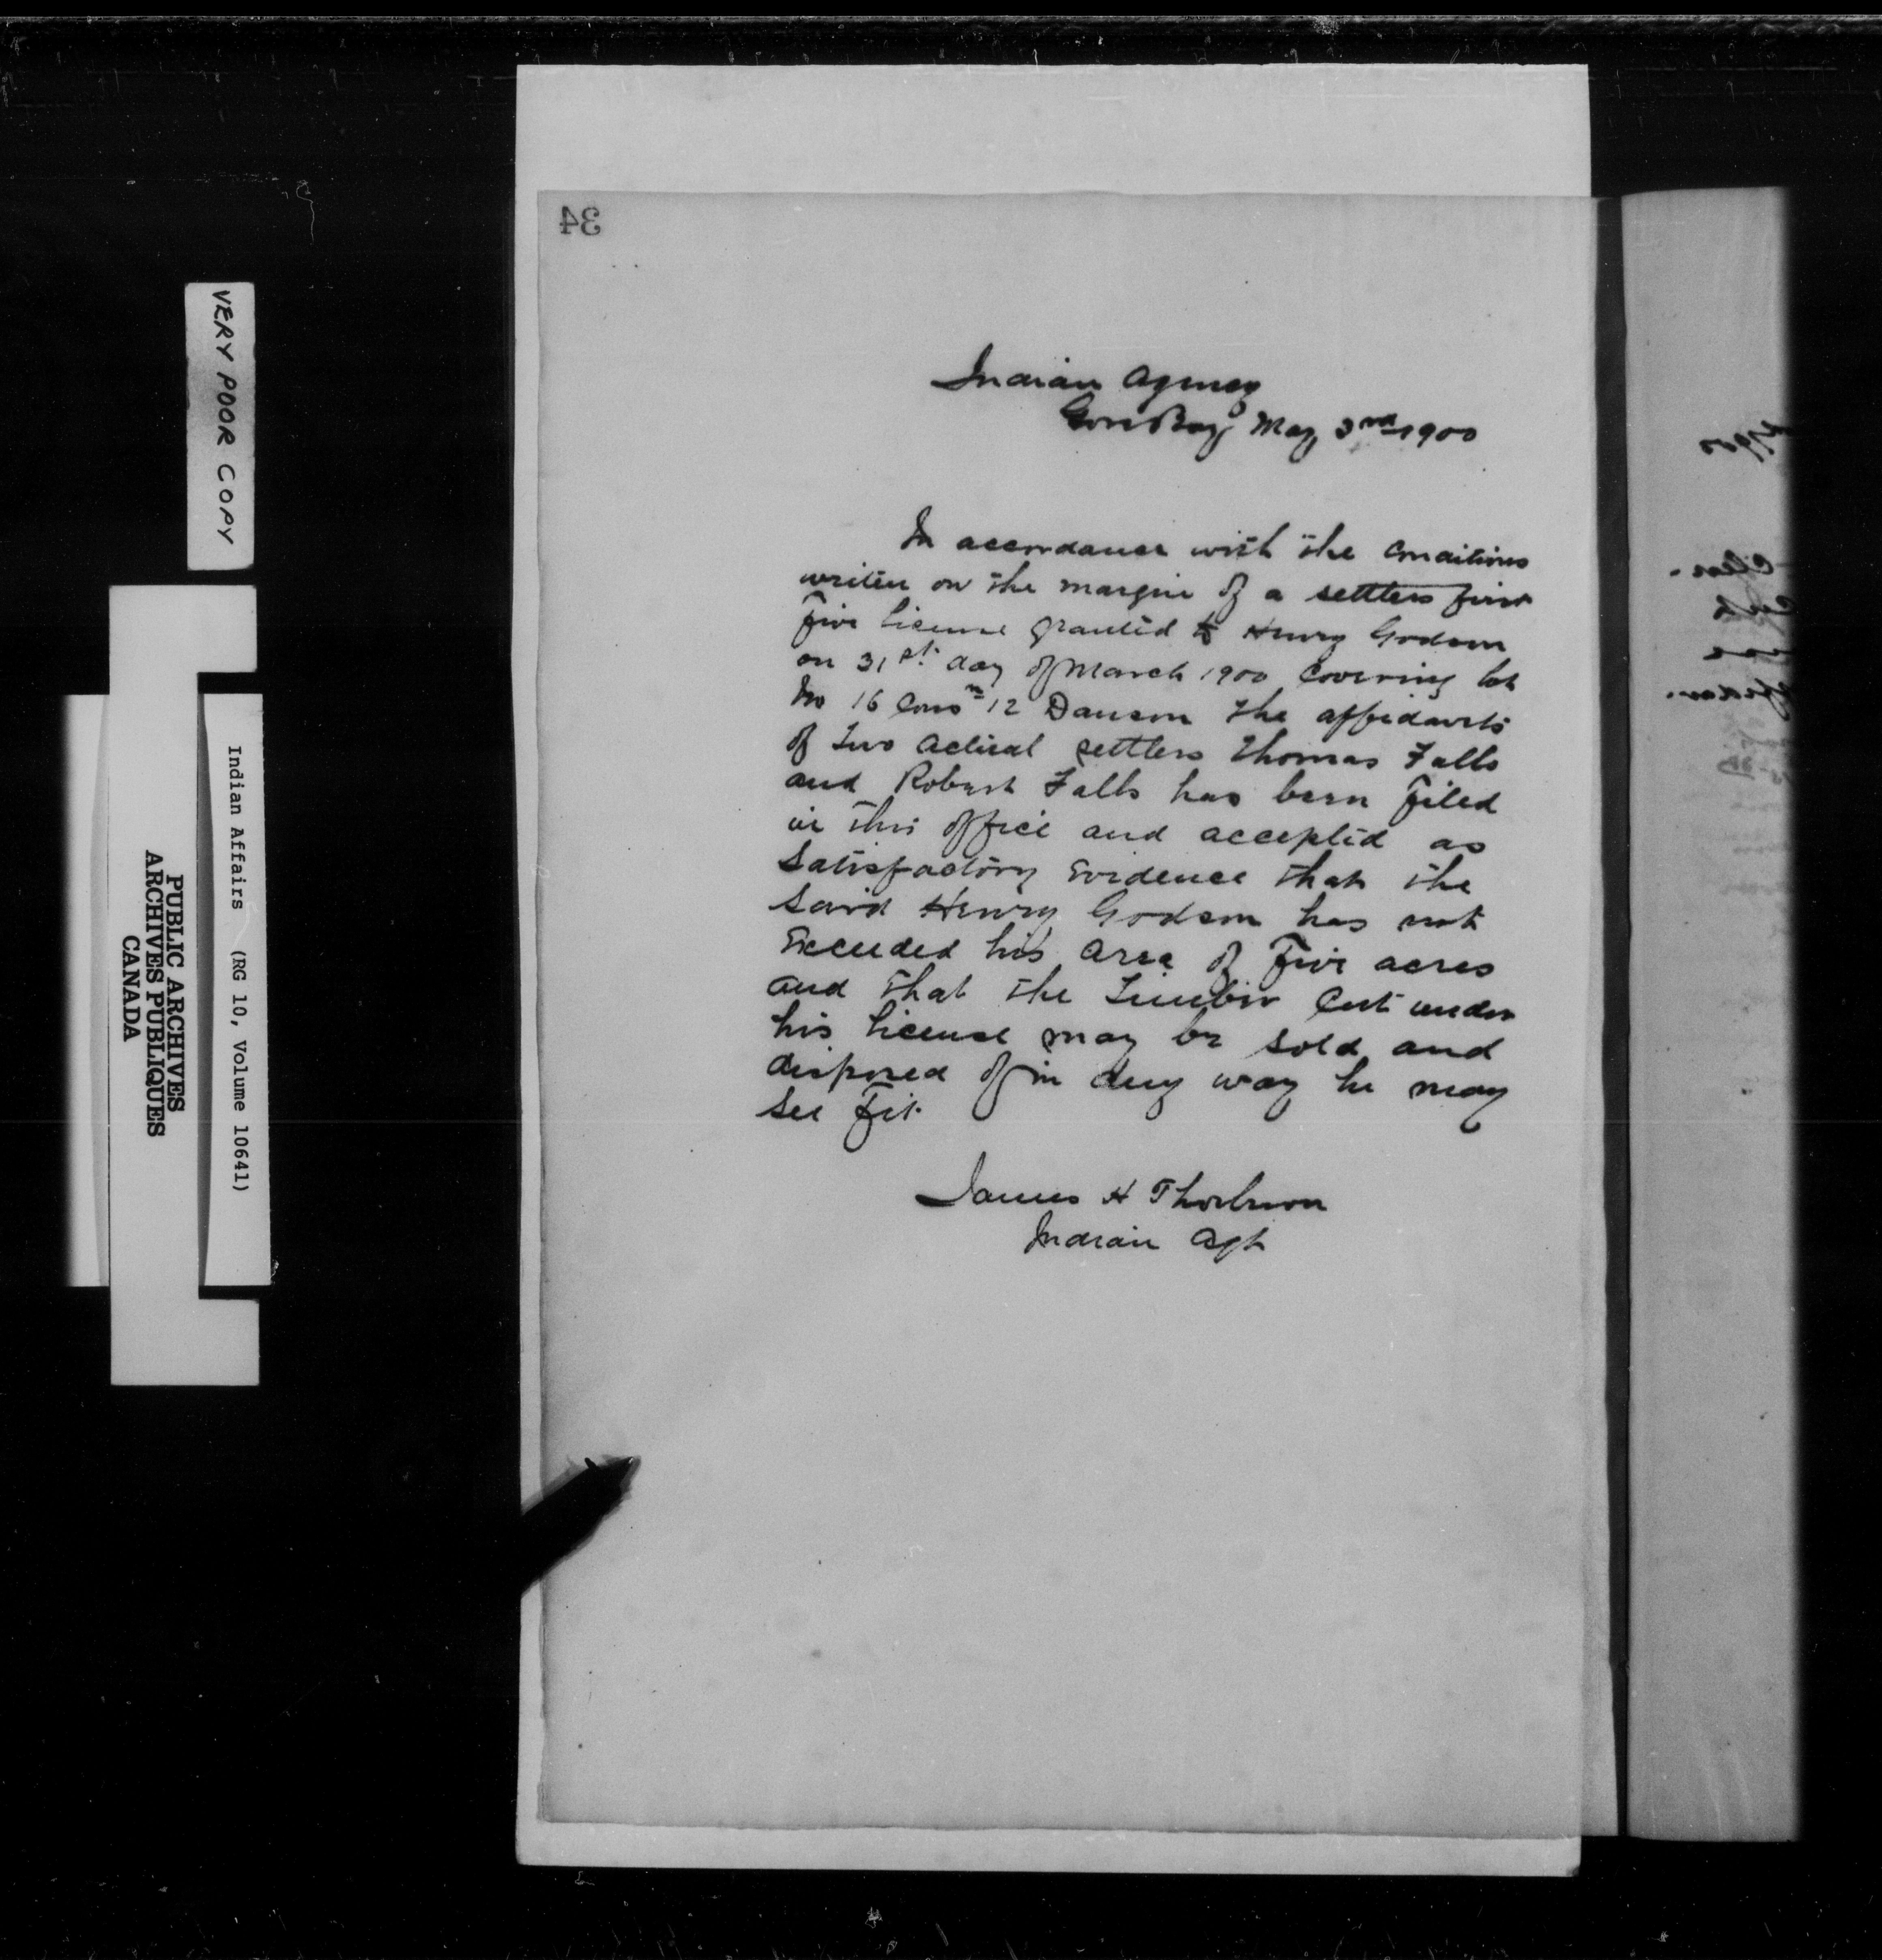 34
Indian Agency
Gore Bay, May 3rd 1900
In accordance with the conditions
writen on the margin of a settlers
five license granted to Henry Godson
on 31st day of March 1900 Covering lot
No 16 Conn 12 Dawson the affidavits
of two actual settlers Thomas Falls
and Robert Falls has been filed
in this office and accepted as
Satisfactory Evidence that the
said Henry Godson has not
Exceeded his area of Five acres
and that the Timber Cut under
his license may be sold and
disposed of in any way he may
see fit
James H Thorburn
Indian Agt
VERY POOR COPY
Indian Affairs (RG 10, Volume 10641)
PUBLIC ARCHIVES
ARCHIVES PUBLIQUES
CANADA